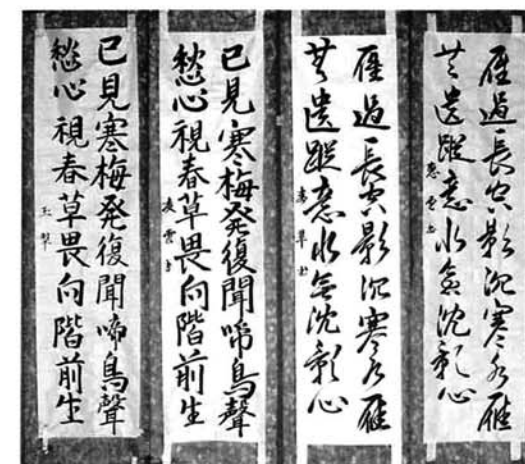 雁過長空影沈寒水雁
無遺蹤意水無沈影心
雁過長空影沈寒水雁
無遺蹤意水無沈影心
已見寒梅発復聞啼鳥聲
愁心視春草畏向階前生
已見寒梅発復聞啼鳥聲
愁心視春草畏向階前生
玉翠